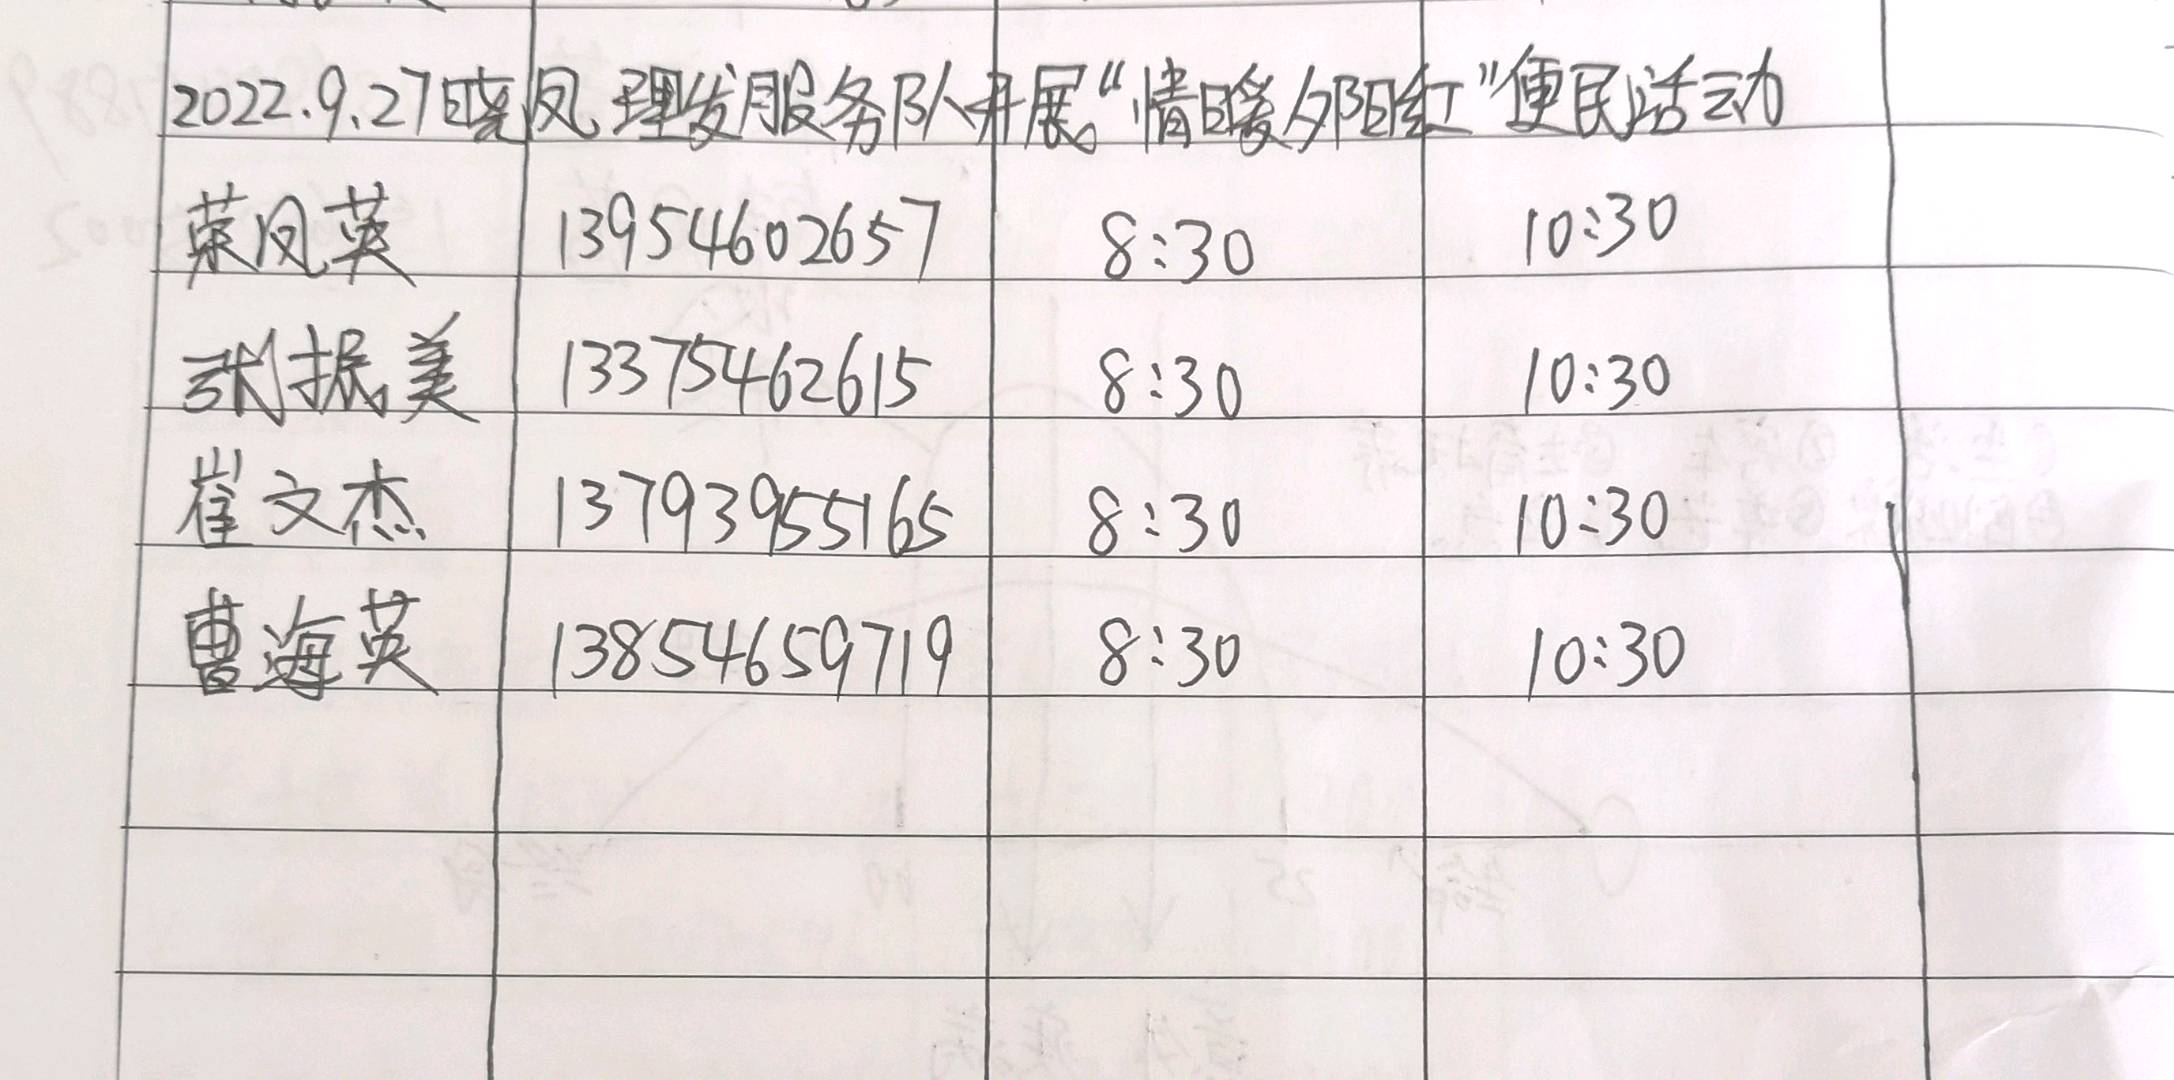 2022.9.27晓凤理发服务队开展“情暖夕阳红”便民活动
荣凤英 13954602657 8:30 10:30
张振美 13375462615 8:30 10:30
崔文杰 13793955165 8:30 10:30
曹海英 13854659719 8:30 10:30